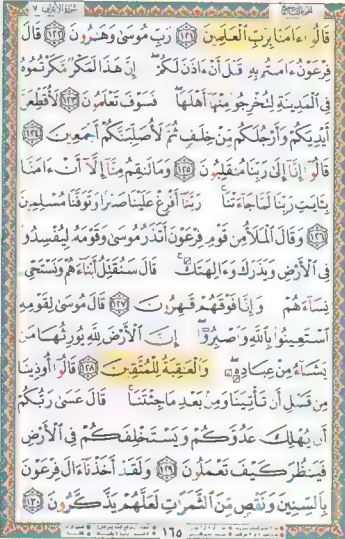 سورة الأعراف ٧
قَالُوٓاْ ءَامَنَّا بِرَبِّ ٱلۡعَٰلَمِينَ ١٢١ رَبِّ مُوسَىٰ وَهَٰرُونَ ١٢٢ قَالَ
فِرۡعَوۡنُ ءَامَنتُم بِهِۦ قَبۡلَ أَنۡ ءَاذَنَ لَكُمۡۖ إِنَّ هَٰذَا لَمَكۡرٞ مَّكَرۡتُمُوهُ
فِي ٱلۡمَدِينَةِ لِتُخۡرِجُواْ مِنۡهَآ أَهۡلَهَاۖ فَسَوۡفَ تَعۡلَمُونَ ١٢٣ لَأُقَطِّعَنَّ
أَيۡدِيَكُمۡ وَأَرۡجُلَكُم مِّنۡ خِلَٰفٖ ثُمَّ لَأُصَلِّبَنَّكُمۡ أَجۡمَعِينَ ١٢٤
قَالُوٓاْ إِنَّآ إِلَىٰ رَبِّنَا مُنقَلِبُونَ ١٢٥ وَمَا تَنقِمُ مِنَّآ إِلَّآ أَنۡ ءَامَنَّا
بِـَٔايَٰتِ رَبِّنَا لَمَّا جَآءَتۡنَاۚ رَبَّنَآ أَفۡرِغۡ عَلَيۡنَا صَبۡرٗا وَتَوَفَّنَا مُسۡلِمِينَ
١٢٦ وَقَالَ ٱلۡمَلَأُ مِن قَوۡمِ فِرۡعَوۡنَ أَتَذَرُ مُوسَىٰ وَقَوۡمَهُۥ لِيُفۡسِدُواْ
فِي ٱلۡأَرۡضِ وَيَذَرَكَ وَءَالِهَتَكَۚ قَالَ سَنُقَتِّلُ أَبۡنَآءَهُمۡ وَنَسۡتَحۡيِۦ
نِسَآءَهُمۡ وَإِنَّا فَوۡقَهُمۡ قَٰهِرُونَ ١٢٧ قَالَ مُوسَىٰ لِقَوۡمِهِ
ٱسۡتَعِينُواْ بِٱللَّهِ وَٱصۡبِرُوٓاْۖ إِنَّ ٱلۡأَرۡضَ لِلَّهِ يُورِثُهَا مَن
يَشَآءُ مِنۡ عِبَادِهِۦۖ وَٱلۡعَٰقِبَةُ لِلۡمُتَّقِينَ ١٢٨ قَالُوٓاْ أُوذِينَا
مِن قَبۡلِ أَن تَأۡتِيَنَا وَمِنۢ بَعۡدِ مَا جِئۡتَنَاۚ قَالَ عَسَىٰ رَبُّكُمۡ
أَن يُهۡلِكَ عَدُوَّكُمۡ وَيَسۡتَخۡلِفَكُمۡ فِي ٱلۡأَرۡضِ
فَيَنظُرَ كَيۡفَ تَعۡمَلُونَ ١٢٩ وَلَقَدۡ أَخَذۡنَآ ءَالَ فِرۡعَوۡنَ
بِٱلسِّنِينَ وَنَقۡصٖ مِّنَ ٱلثَّمَرَٰتِ لَعَلَّهُمۡ يَذَّكَّرُونَ ١٣٠
١٦٥